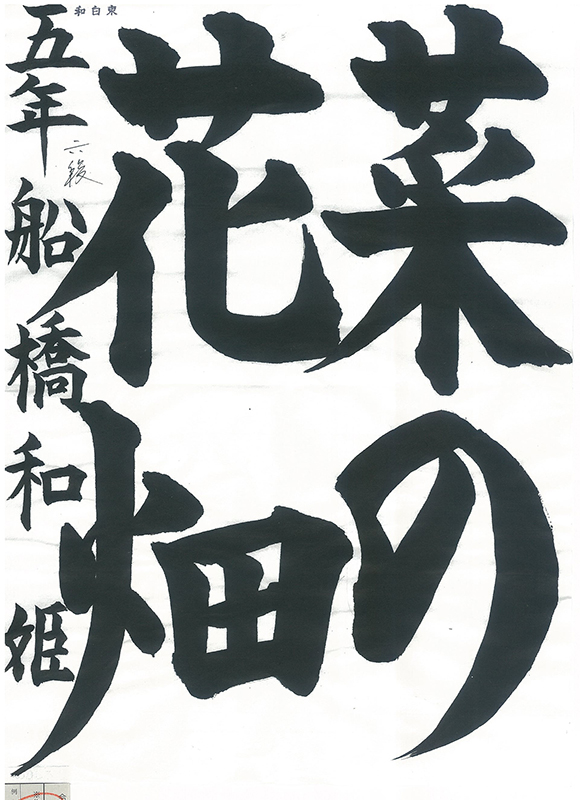 菜の
花畑
五年 船橋和姫
六段
和白東